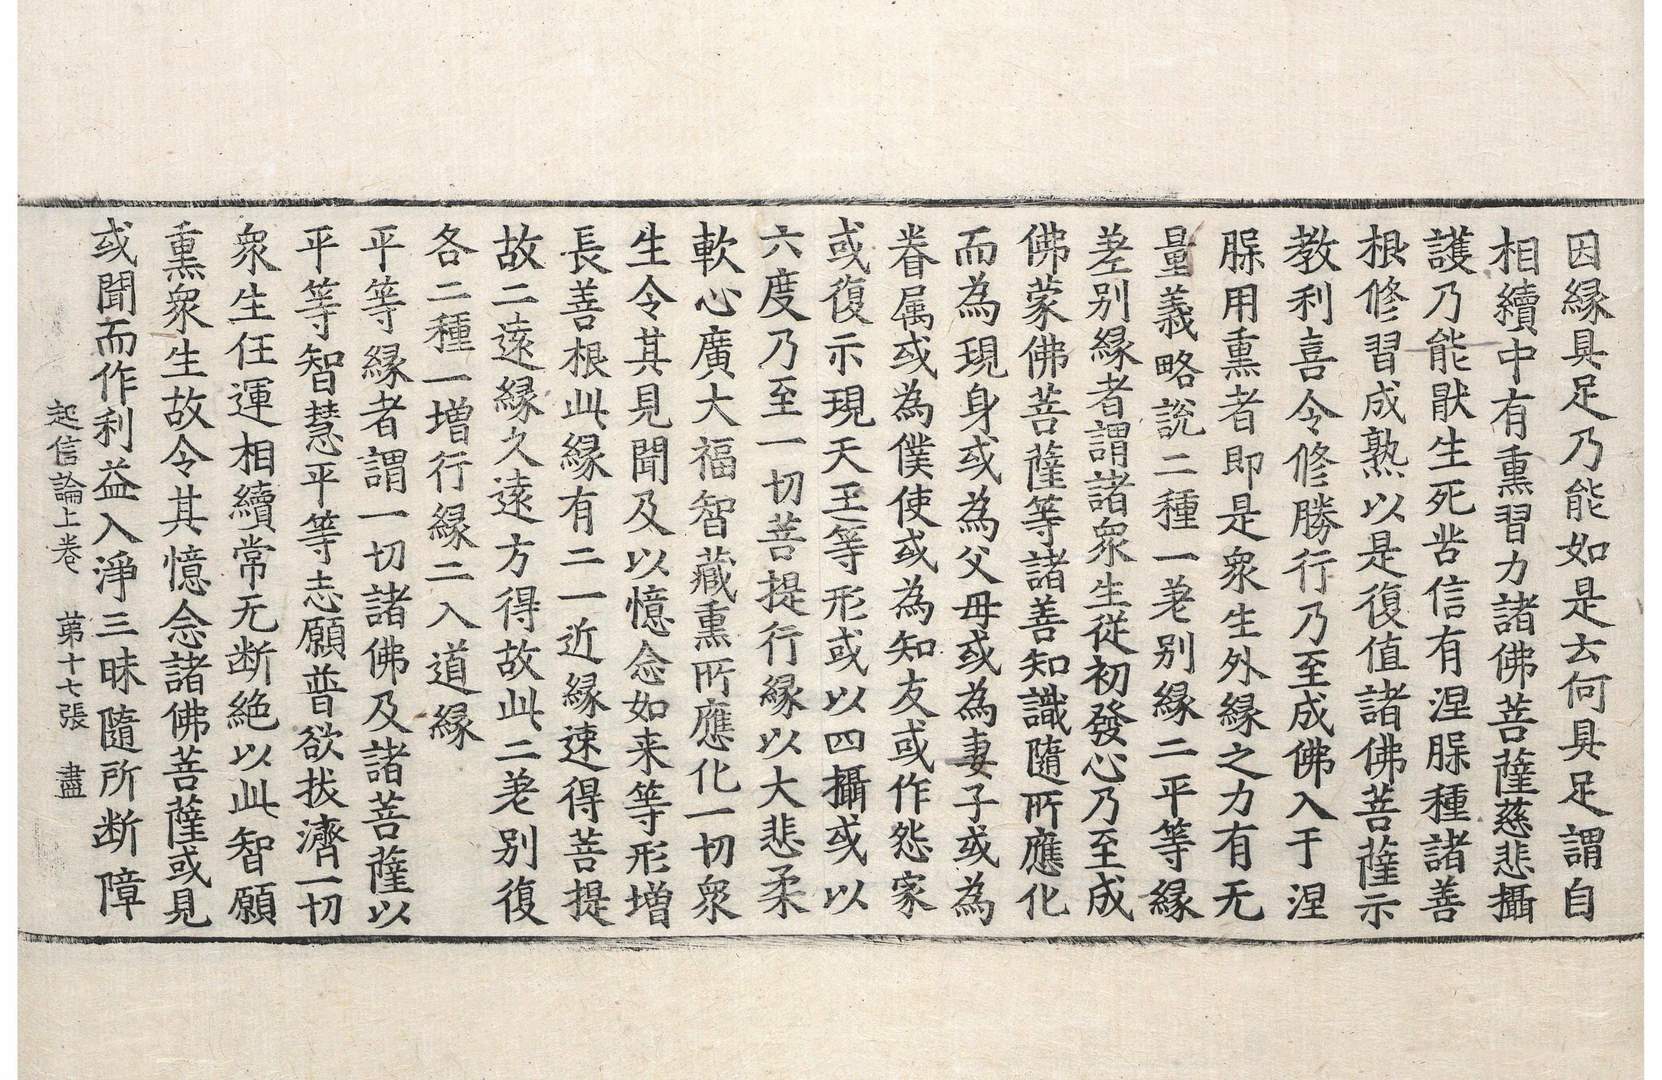 因緣具足乃能如是云何具足謂自
相續中有熏習力諸佛菩薩慈悲攝
護乃能猒生死苦信有涅槃種諸善
根修習成熟以是復值諸佛菩薩示
教利喜令修勝行乃至成佛入于涅
槃用熏者即是衆生外緣之力有无
量義略說二種一差別緣二平等緣
差別緣者謂諸衆生從初發心乃至成
佛蒙佛菩薩等諸善知識隨所應化
而為現身或為父母或為妻子或為
眷属或為僕使或為知友或作怨家
或復示現天王等形或以四攝或以
六度乃至一切菩提行緣以大悲柔
軟心廣大福智藏熏所應化一切衆
生令其見聞及以憶念如来等形增
長善根此緣有二一近緣速得菩提
故二遠緣久遠方得故此二差别復
各二種一增行緣二入道緣
平等緣者謂一切諸佛及諸菩薩以
平等智慧平等志願普欲拔濟一切
衆生任運相續常无断絶以此智願
熏衆生故令其憶念諸佛菩薩或見
或聞而作利益入淨三昧隨所断障
起信論上卷 苐十七張 盡